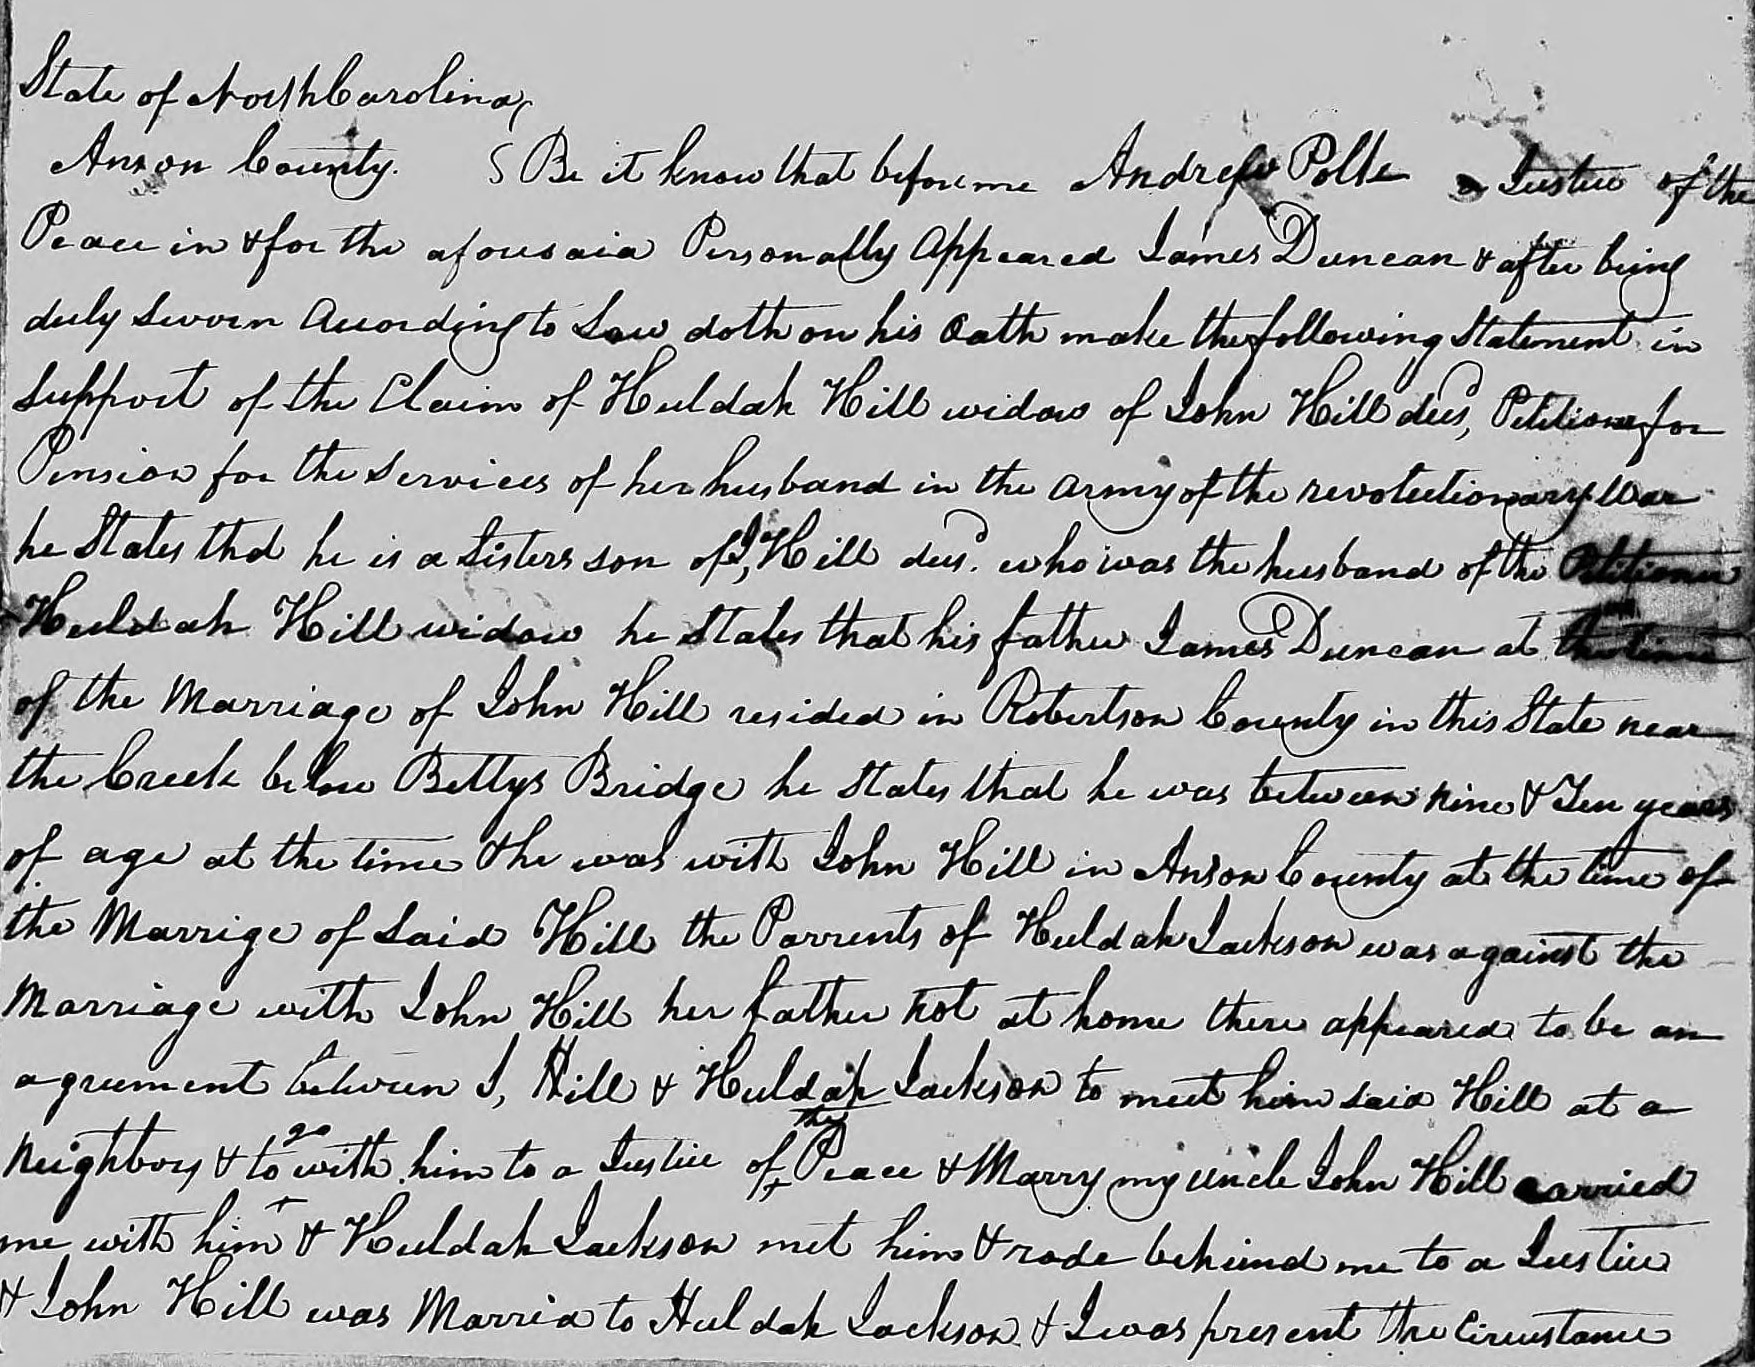 State of North Carolina
Anson County. } Be it know that before me Andrew Polk a Justice of the
Peace in & for the aforesaid Personally Appeared James Duncan & after being
duly sworn According to Law doth on his Oath make the following Statement in
support of the Claim of Huldah Hill widow of John Hill decd, Petitioner for
Pension for the Services of her husband in the army of the revolutionary War
he States that he is a Sisters son of J, Hill decd. who was the husband of the Petitioner
Huldah Hill widow he States that his father James Duncan at the time
of the Marriage of John Hill resided in Robertson County in this State near
the Creek below Bettys Bridge he States that he was between nine & Ten years
of age at the time & he was with John Hill in Anson County at the time of
the Marrige of Said Hill the Parrents of Huldah Jackson was against the
Marriage with John Hill her father not at home there appeared to be an
agreement between J, Hill & Huldah Jackson to meet him said Hill at a
Neighbors & to go with him to a Justice of the Peace & Marry my uncle John Hill carried
me with him & Huldah Jackson met him & rode behind me to a Justice
& John Hill was Married to Huldah Jackson & I was present the Circumstance